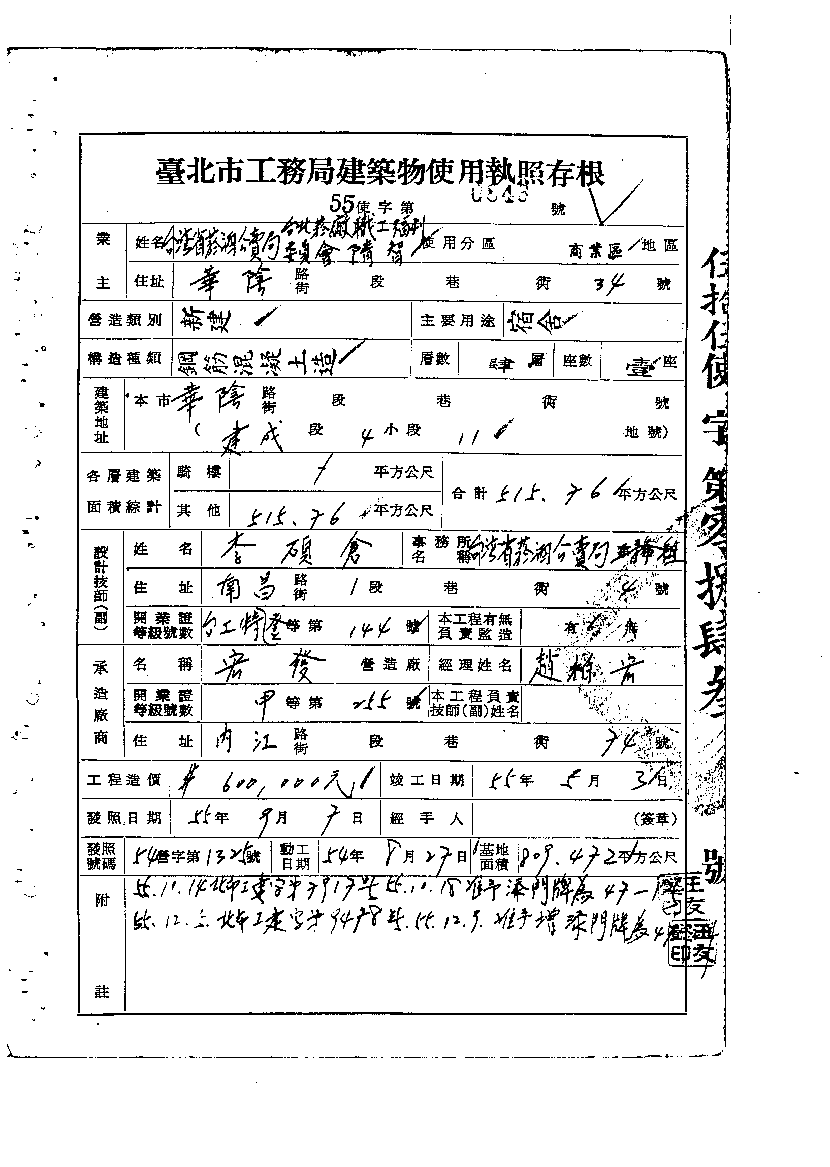 臺北市工務局建築物使用執照存根
55使字第0843號
業主 姓名 台灣省菸酒公賣局台北菸廠職工福利委員會 使用分區 商業區 地區
住址 華陰 路街 段 巷 衖 34 號
營造類別 新建 主要用途 宿舍
構造種類 鋼筋混凝土造 層數 肆層 座數 壹座
建築地址 本市華陰 路街 段 巷 衖 號
(建成段 4小段 11 地號)
各層建築面積綜計 騎樓 平方公尺 合計 515.76 平方公尺
其他 515.76 平方公尺
設計技師(副) 姓名 李碩倉 事務所名稱 台灣省菸酒公賣局
住址 南昌 路街 1段 巷 衖 4 號
開業證等級號數 台工特登等第144號 本工程有無負責監造 有
承造廠商 名稱 宏發 營造廠 經理姓名 趙
開業證等級號數 甲等第255號 本工程負責技師(副)姓名
住址 內江 路街 段 巷 衖 74 號
工程造價 # 600,000元 竣工日期 55年5月3日
發照日期 55年9月7日 經手人 (簽章)
發照號碼 54營字第1325號 動工日期 54年8月27日 基地面積 809.472平方公尺
附註 55.10.14北市工建字第7917號 55.10.18准予添門牌為47
55.12.2.北市工建字第9478號 55.12.9.准予增添門牌為
伍拾伍使字第零捌肆叁號